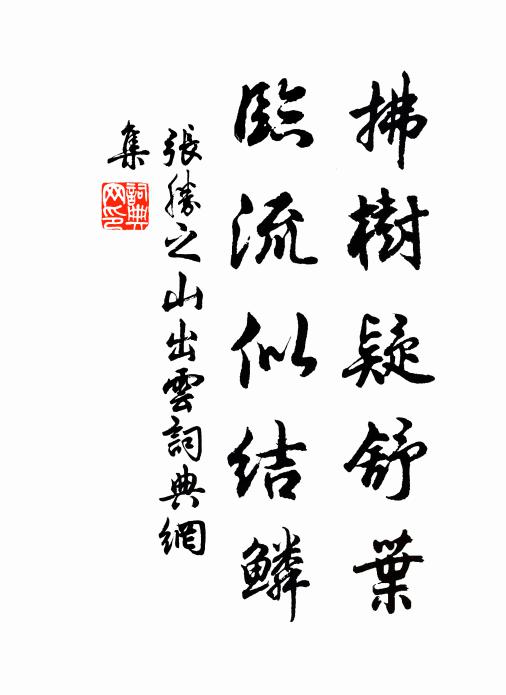 拂樹疑舒葉
臨流似結鱗
張勝之山出雲詞典網
集
詞典
网印